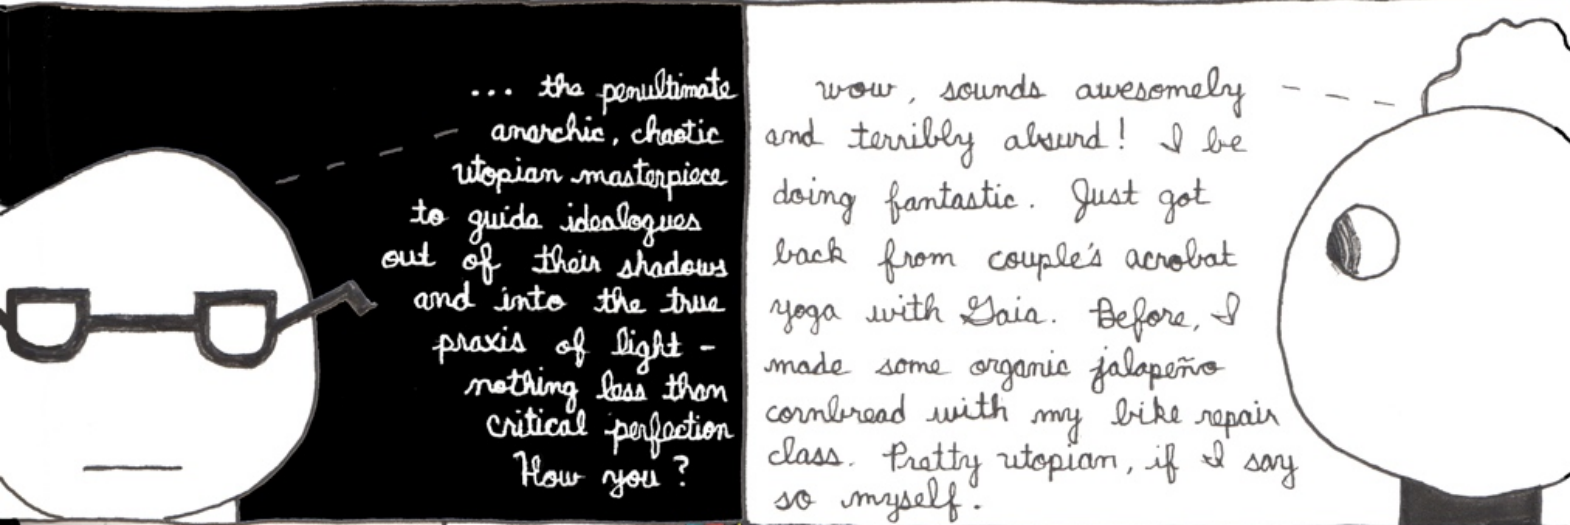 ... the penultimate
anarchic, chaotic
utopian masterpiece
to guide idealogues
out of their shadows
and into the true
praxis of light -
nothing less than
critical perfection
How you?
wow, sounds awesomely
and terribly absurd! I be
doing fantastic. Just got
back from couple's acrobat
yoga with Gaia. Before, I
made some organic jalapeño
cornbread with my bike repair
class. Pretty utopian, if I say
so myself.